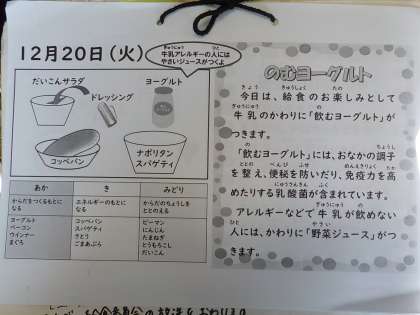 12月20日(火)
牛乳アレルギーの人には
やさいジュースがつくよ
だいこんサラダ
ドレッシング
ヨーグルト
コッペパン
ナポリタン
スパゲティ
あか
き
みどり
からだをつくるもとに
なる
エネルギーのもとに
なる
からだのちょうしを
ととのえる
ヨーグルト
ベーコン
ウインナー
まぐろ
コッペパン
スパゲティ
さとう
ごまあぶら
ピーマン
にんじん
たまねぎ
とうもろこし
だいこん
のむヨーグルト
今日は、給食のお楽しみとして
牛乳のかわりに「飲むヨーグルト」が
つきます。
「飲むヨーグルト」には、おなかの調子
を整え、便秘を防いだり、免疫力を高
めたりする乳酸菌が含まれています。
アレルギーなどで牛乳が飲めない
人には、かわりに「野菜ジュース」がつ
きます。